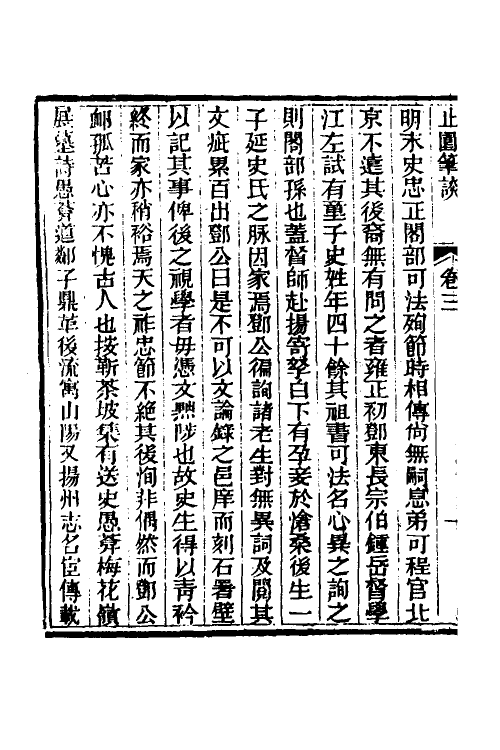 止園筆談　卷三　一
明末史忠正閣部可法殉節時相傳尚無嗣息弟可程官北
京不達其後裔無有問之者雍正初鄧東長宗伯鍾岳督學
江左試有童子史姓年四十餘其祖書可法名心異之詢之
則閣部孫也蓋督師赴揚寄孥白下有孕妾於滄桑後生一
子延史氏之脉因家焉鄧公徧詢諸老生對無異詞及閱其
文疵累百出鄧公曰是不可以文論錄之邑庠而刻石署壁
以記其事俾後之視學者毋憑文黜陟也故史生得以青衿
終而家亦稍裕焉天之祚忠節不絕其後洵非偶然而鄧公
卹孤苦心亦不愧古人也按靳茶坡集有送史愚葊梅花嶺
展墓詩愚葊道鄰子鼎革後流寓山陽又揚州志名宦傳載